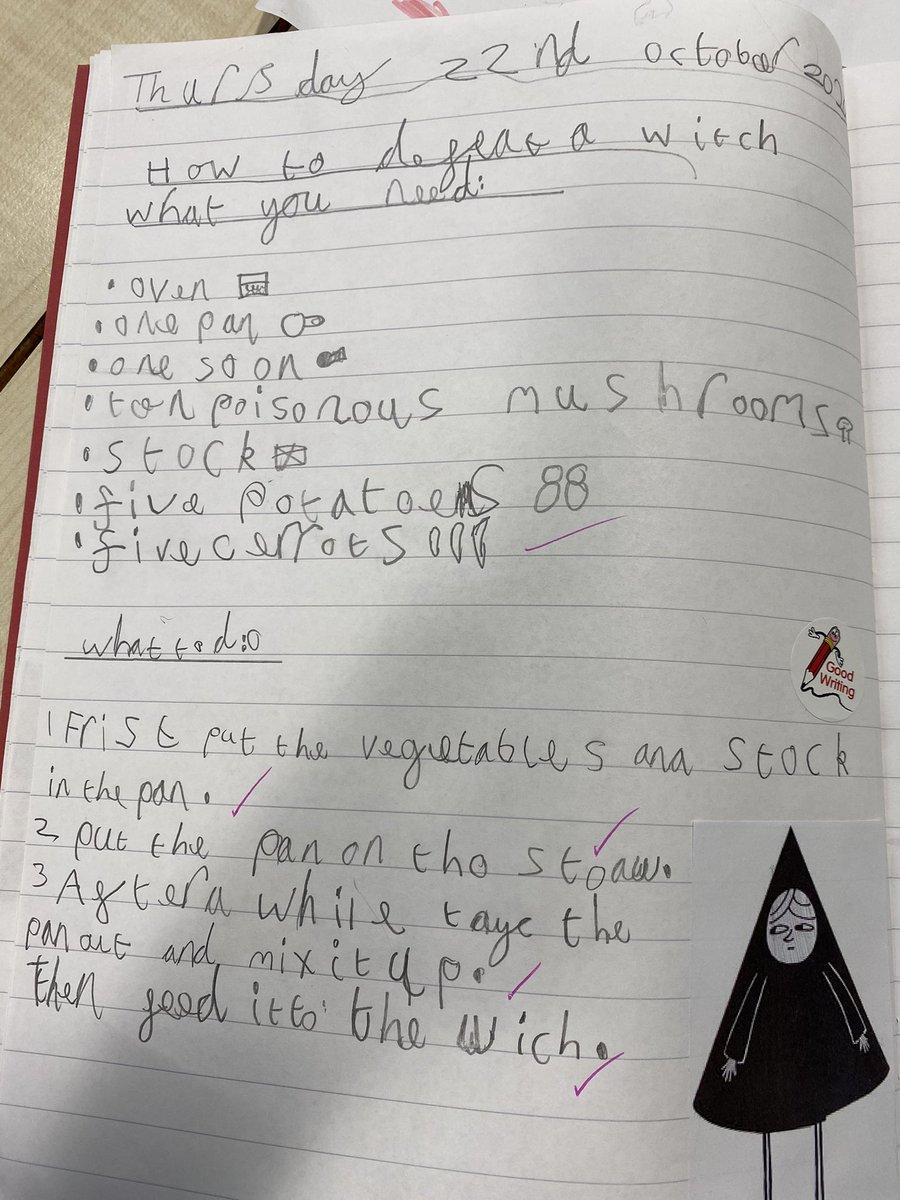 Thursday 22nd october 202
How to defeat a witch
what you need:
• oven
• one pan
• one soon
• ten poisonous mushrooms
• stock
• five potatoes
• five cerrots
what to d:o
Good
Writing
1 Frist put the vegetables and stock
in the pan.
2 put the pan on tho stoaw.
3 After a while tayc the
pan out and mix it up.
then feed it to the wich.